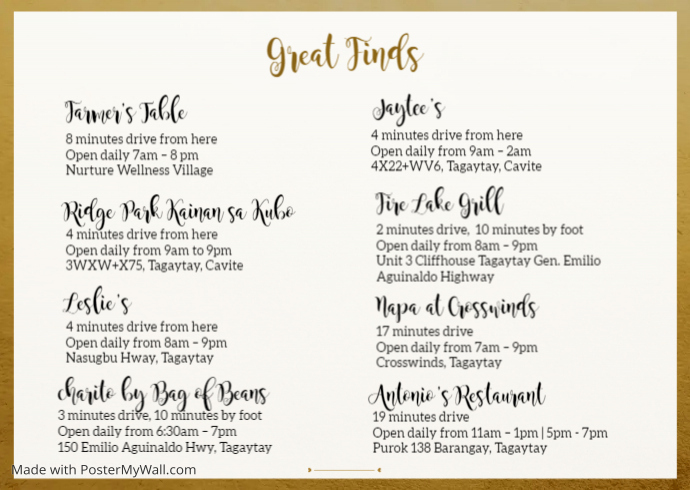 Great Finds
Farmer's Table
8 minutes drive from here
Open daily 7am – 8 pm
Nurture Wellness Village
Ridge Park Kainan sa Kubo
4 minutes drive from here
Open daily from 9am to 9pm
3WXW+X75, Tagaytay, Cavite
Leslie's
4 minutes drive from here
Open daily from 8am – 9pm
Nasugbu Hway, Tagaytay
charito by Bag of Beans
3 minutes drive, 10 minutes by foot
Open daily from 6:30am – 7pm
150 Emilio Aguinaldo Hwy, Tagaytay
Jaytee's
4 minutes drive from here
Open daily from 9am – 2am
4X22+WV6, Tagaytay, Cavite
Fire Lake Grill
2 minutes drive, 10 minutes by foot
Open daily from 8am – 9pm
Unit 3 Cliffhouse Tagaytay Gen. Emilio
Aguinaldo Highway
Napa at Crosswinds
17 minutes drive
Open daily from 7am – 9pm
Crosswinds, Tagaytay
Antonio's Restaurant
19 minutes drive
Open daily from 11am – 1pm | 5pm - 7pm
Purok 138 Barangay, Tagaytay
Made with PosterMyWall.com